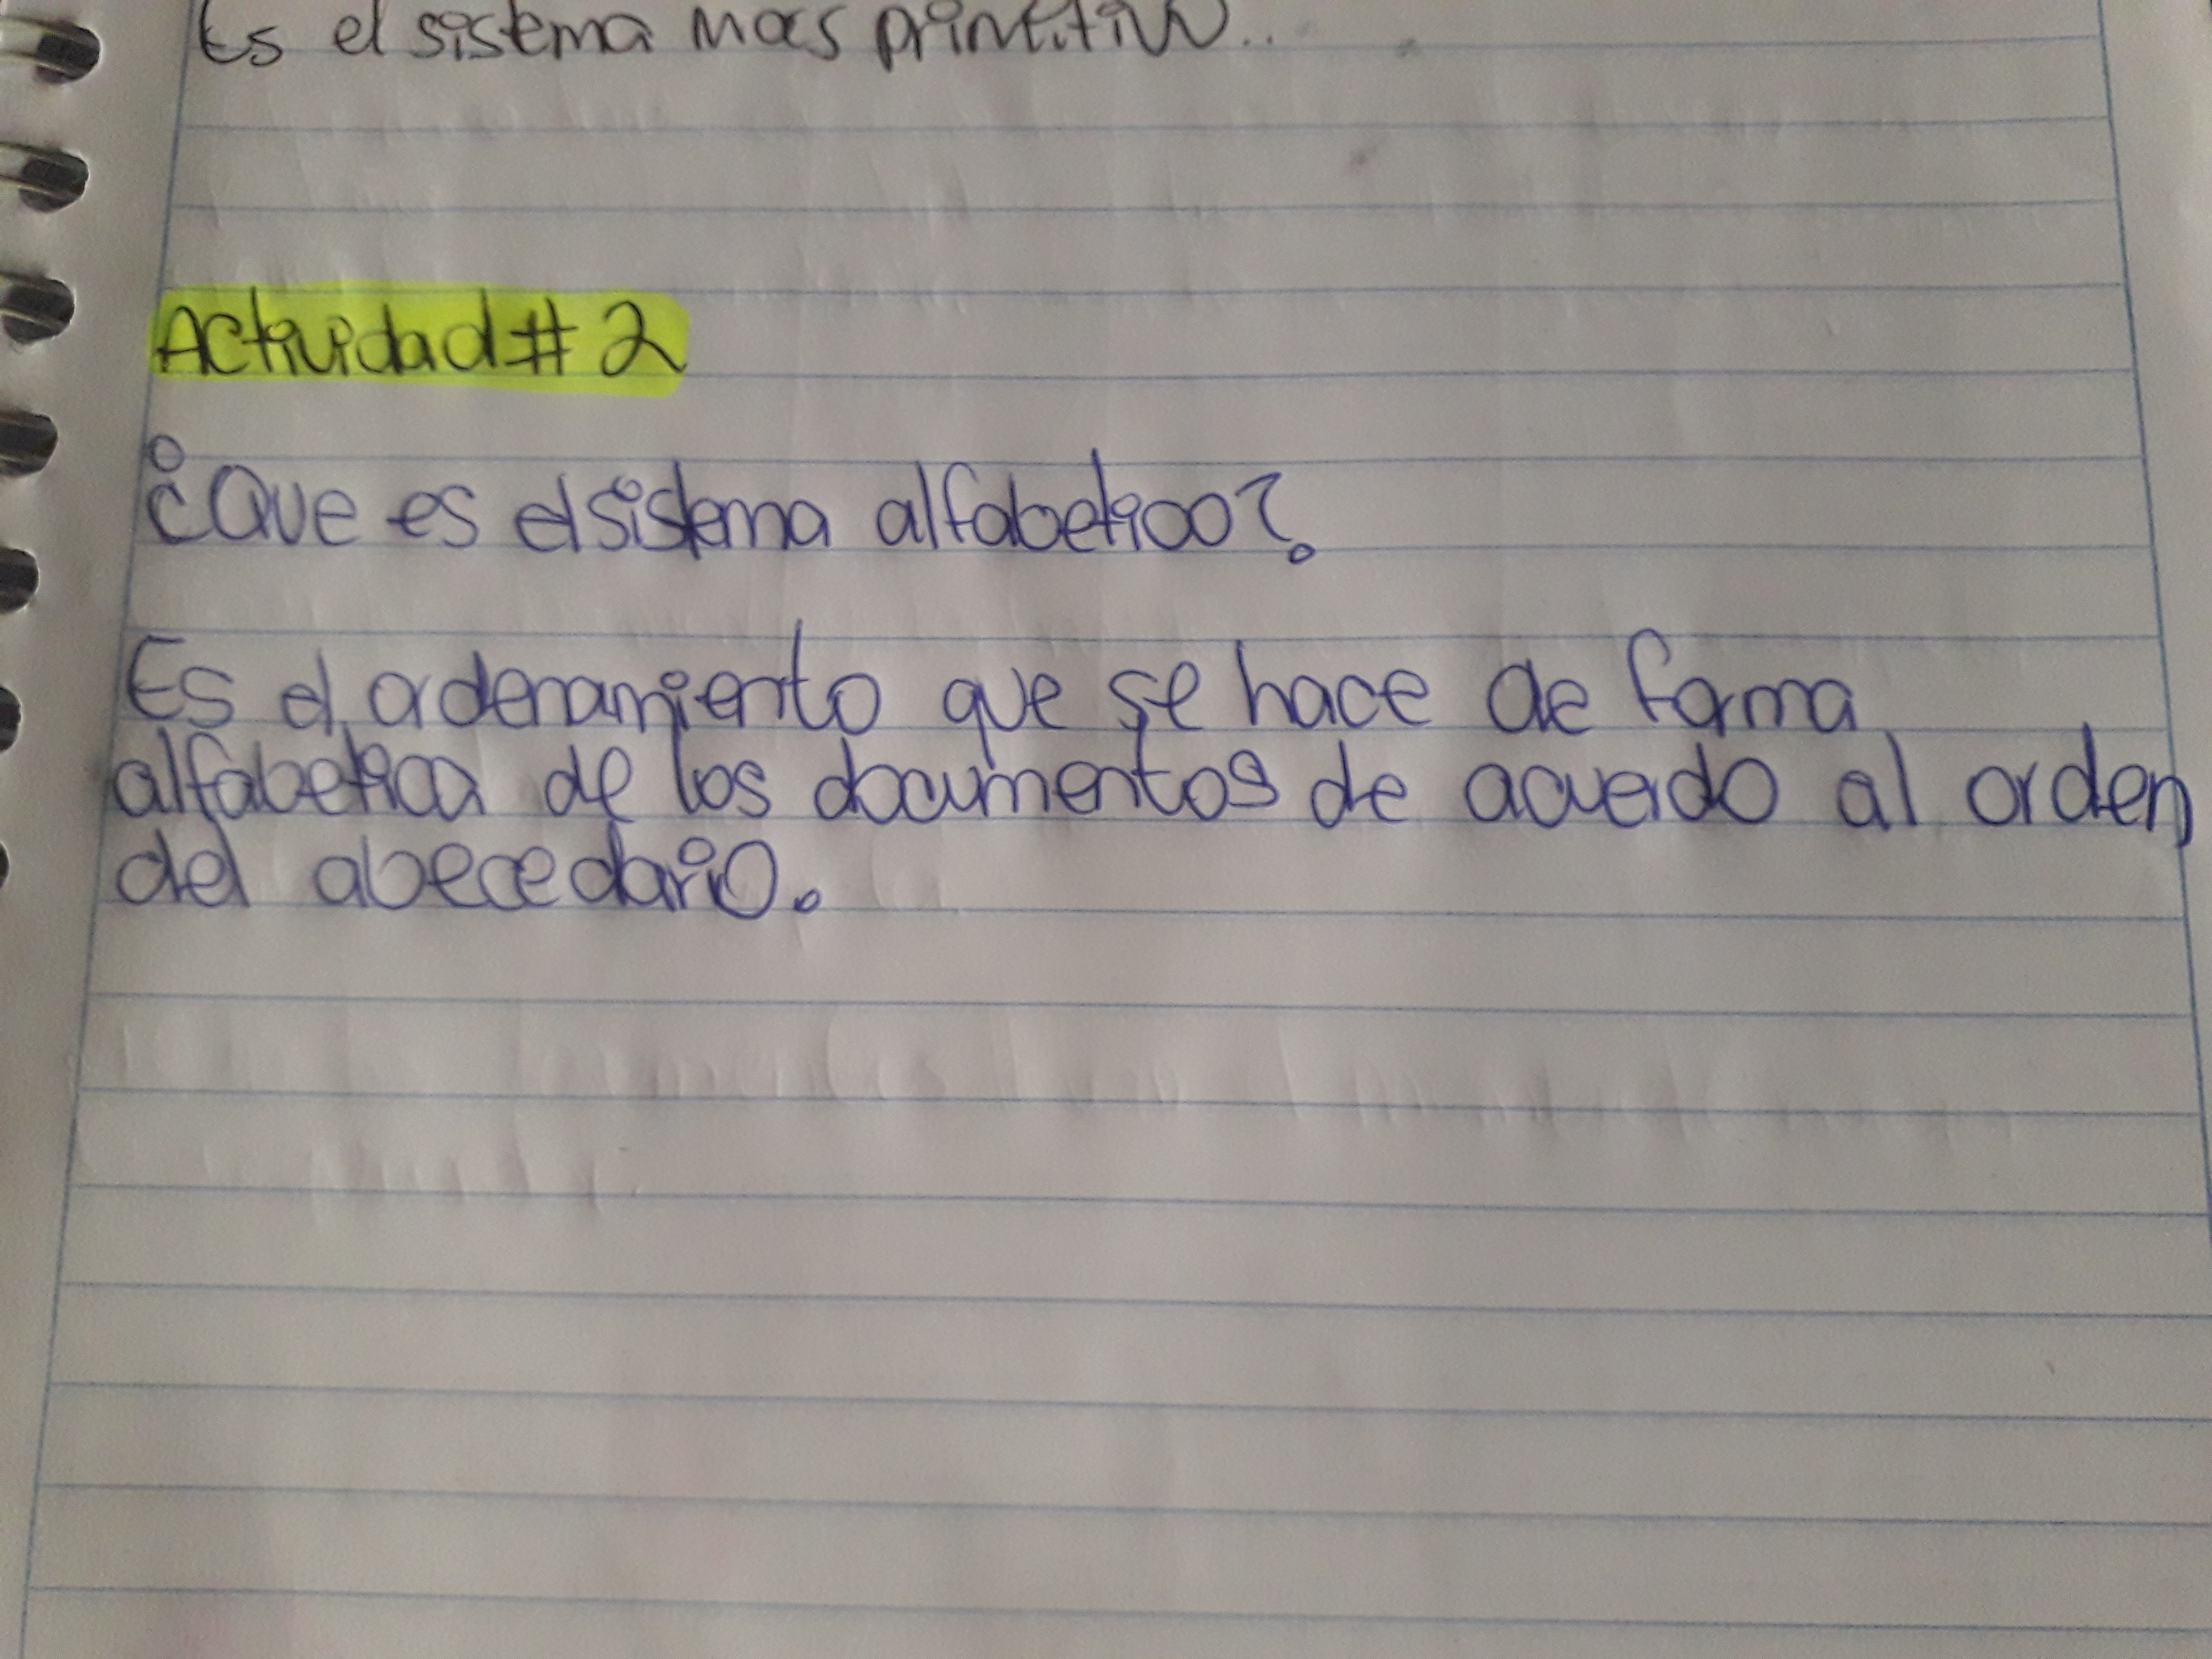 Es el sistema mas primitivo..
Actividad # 2
¿Que es el sistema alfabetico?
Es el ordenamiento que se hace de forma
alfabetica de los documentos de acuerdo al orden
del abecedario.